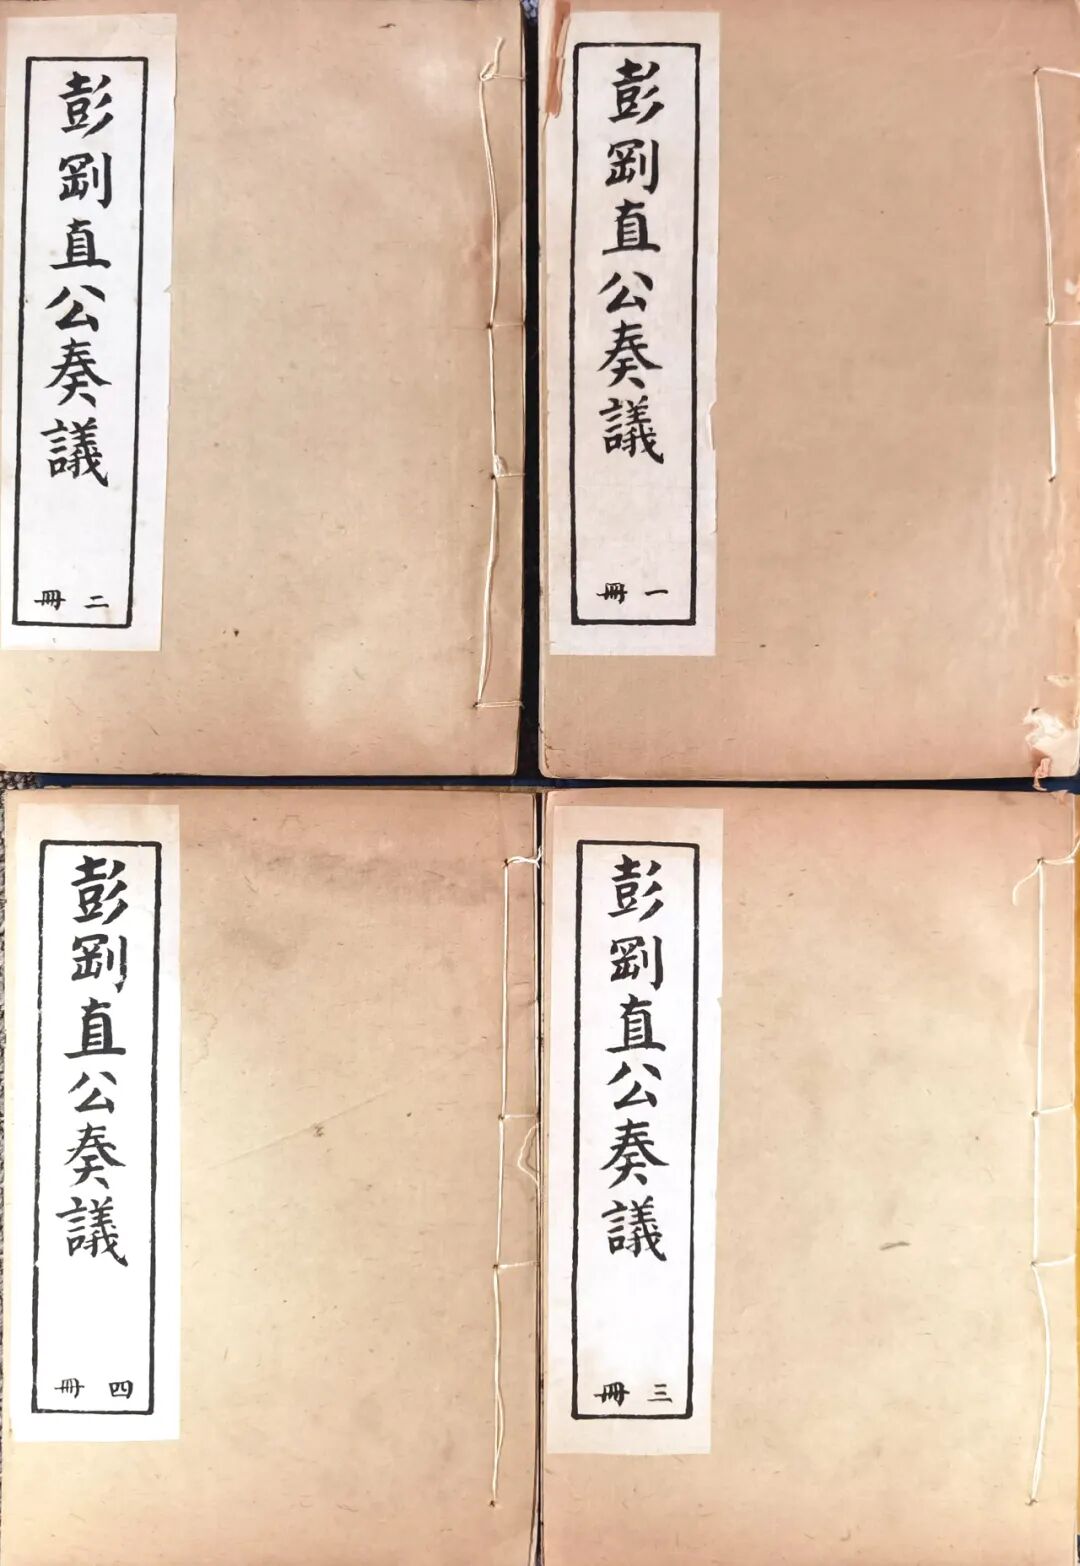 彭剛直公奏議
一冊
彭剛直公奏議
二冊
彭剛直公奏議
三冊
彭剛直公奏議
四冊